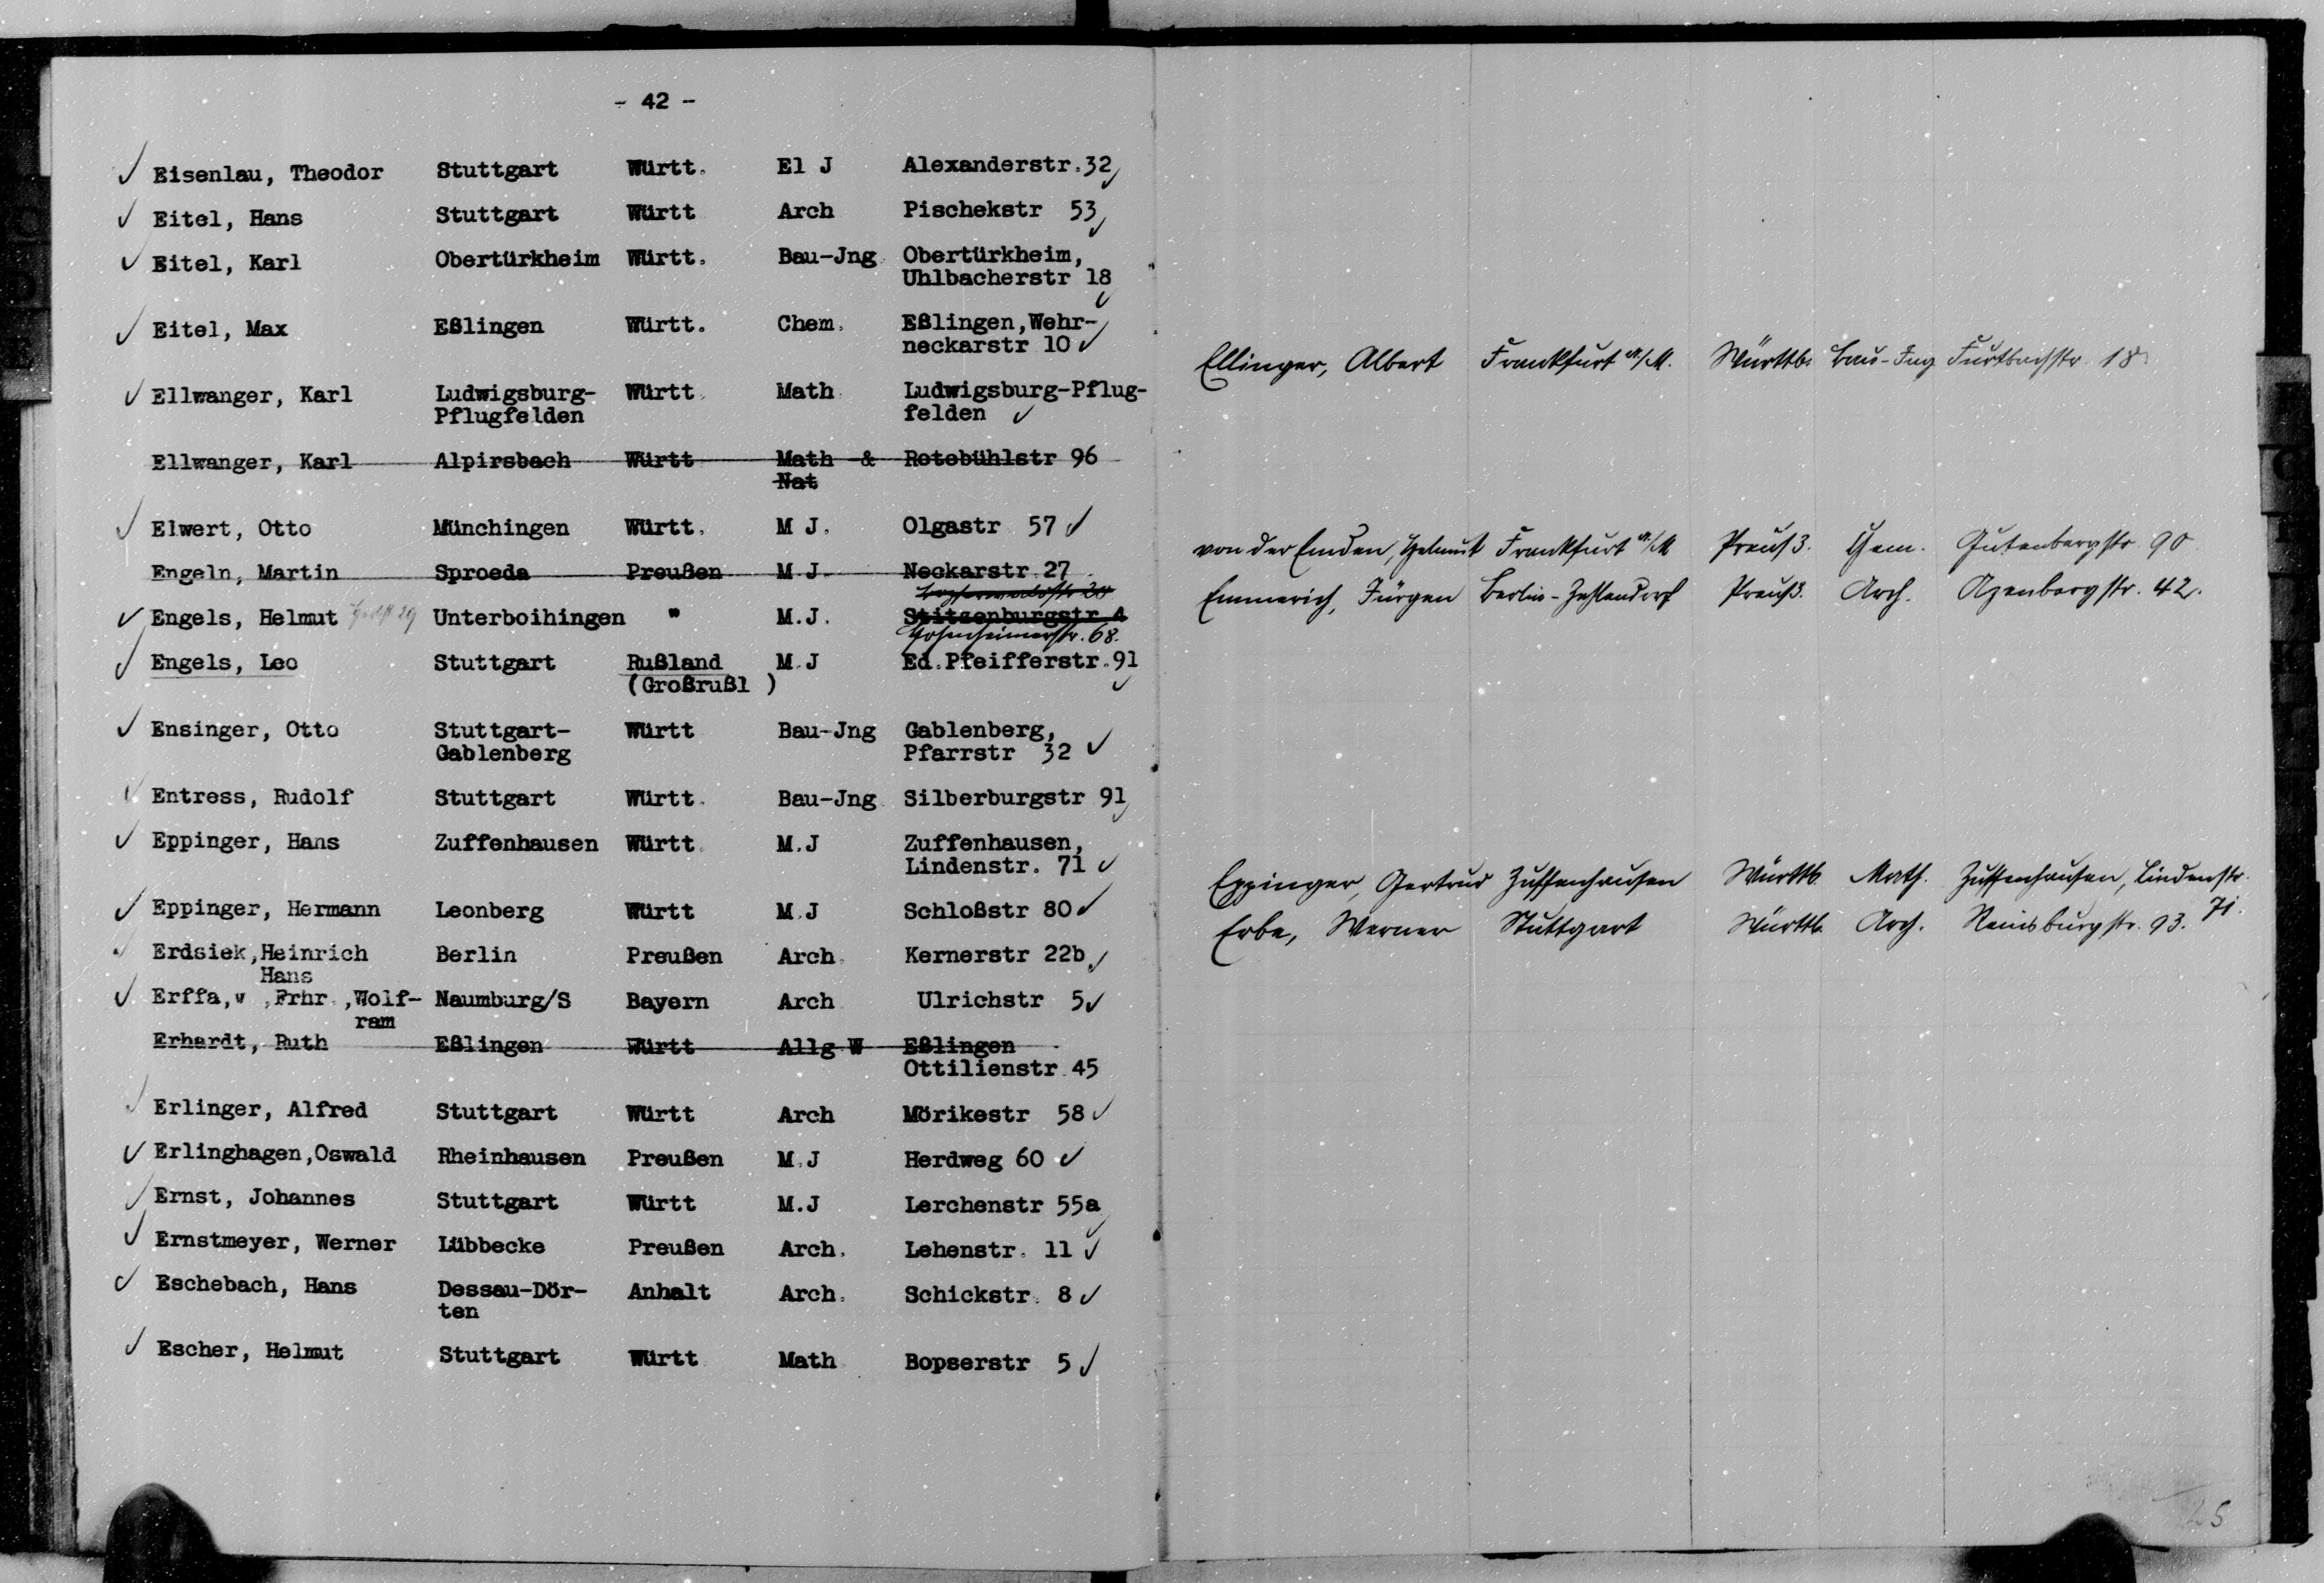 - 42 -
Eisenlau, Theodor Stuttgart Württ. El J Alexanderstr.32
Eitel, Hans Stuttgart Württ Arch Pischekstr 53
Eitel, Karl Obertürkheim Württ. Bau-Jng Obertürkheim,
Uhlbacherstr 18
Eitel, Max Eßlingen Württ. Chem. Eßlingen,Wehr-
neckarstr 10
Ellwanger, Karl Ludwigsburg- Württ. Math Ludwigsburg-Pflug-
Pflugfelden felden
Ellwanger, Karl Alpirsbach Württ Math & Rotebühlstr 96
Nat
Elwert, Otto Münchingen Württ. M J. Olgastr 57
Engeln, Martin Sproeda Preußen M.J. Neckarstr.27
Engels, Helmut Unterboihingen " M.J. Stitzenburgstr 4
Hohenheimerstr. 68.
Engels, Leo Stuttgart Rußland M.J Ed.Pfeifferstr.91
(Großrußl )
Ensinger, Otto Stuttgart- Württ Bau-Jng Gablenberg,
Gablenberg Pfarrstr 32
Entress, Rudolf Stuttgart Württ. Bau-Jng Silberburgstr 91
Eppinger, Hans Zuffenhausen Württ. M.J Zuffenhausen,
Lindenstr. 71
Eppinger, Hermann Leonberg Württ M.J Schloßstr 80
Erdsiek,Heinrich Berlin Preußen Arch. Kernerstr 22b
Hans
Erffa,v ,Frhr.,Wolf- Naumburg/S Bayern Arch Ulrichstr 5
ram
Erhardt, Ruth Eßlingen Württ Allg W Eßlingen
Ottilienstr.45
Erlinger, Alfred Stuttgart Württ Arch Mörikestr 58
Erlinghagen,Oswald Rheinhausen Preußen M.J Herdweg 60
Ernst, Johannes Stuttgart Württ M.J Lerchenstr 55a
Ernstmeyer, Werner Lübbecke Preußen Arch. Lehenstr. 11
Eschebach, Hans Dessau-Dör- Anhalt Arch. Schickstr. 8
ten
Escher, Helmut Stuttgart Württ Math Bopserstr 5
Ellinger, Albert Frankfurt a/M. Württb. Bau-Ing Furtbachstr. 18
von der Emden, Helmut Frankfurt a/M Preuß. Chem. Gutenbergstr. 90
Emmerich, Jürgen Berlin-Zehlendorf Preuß. Arch. Azenbergstr. 42.
Eppinger, Gertrud Zuffenhausen Württb. Math. Zuffenhausen, Lindenstr.
71.
Erbe, Werner Stuttgart Württb. Arch. Reinsburgstr. 93.